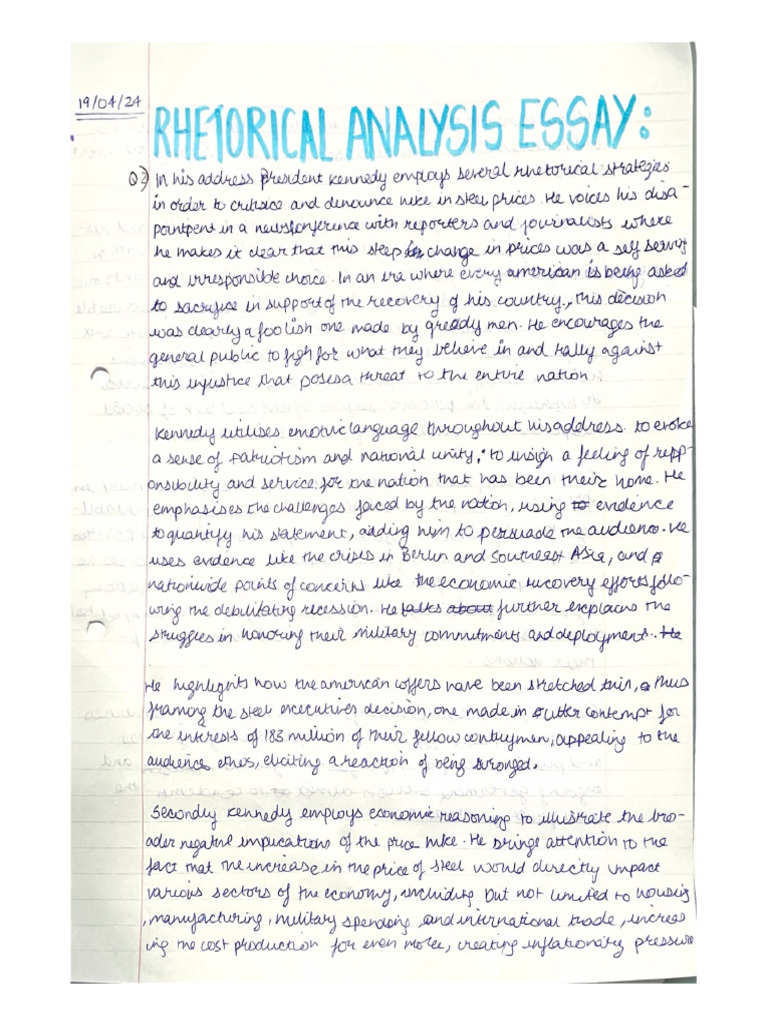 19/04/24
RHETORICAL ANALYSIS ESSAY:
Q2) In his address President Kennedy employs several rhetorical strategies
in order to critisise and denounce hike in steel prices. He voices his disa-
pointpent in a newsconference with reporters and journalists where
he makes it clear that this step in change in prices was a self serving
and irresponsible choice. In an era where every american is being asked
to sacrifise in support of the recovery of his country., this decision
was clearly a foolish one made by greedy men. He encourages the
general public to figh for what they believe in and rally against
this injustice that poses a threat to the entire nation
Kennedy utilises emotive language throughout his address to evoke
a sense of Patriotism and national unity, to insign a feeling of resp-
onsibility and service for the nation that has been their home. He
emphasises the challenges faced by the nation, using to evidence
to quantify his statement, aiding him to persuade the audience. He
uses evidence like the crises in Berlin and Southeast Asia, and
nationwide points of concerns like the economic recovery efforts follo-
wing the debilitating recession. He talks about further explains the
struggles in honoring their military commitments and deployment. He
He highlights how the american coffers have been stretched thin, thus
framing the steel executives decision, one made in utter contempt for
the interests of 183 million of their fellow contrymen, appealing to the
audience ethos, eliciting a reaction of being wronged.
Secondly Kennedy employs economic reasoning to illustrate the bro-
ader negative implications of the price hike. He brings attention to the
fact that the increase in the price of steel would directly impact
various sectors of the economy, including but not limited to housing
, manufacturing, military spending and international trade, increas
ing the cost production for even more, creating inflationary pressure